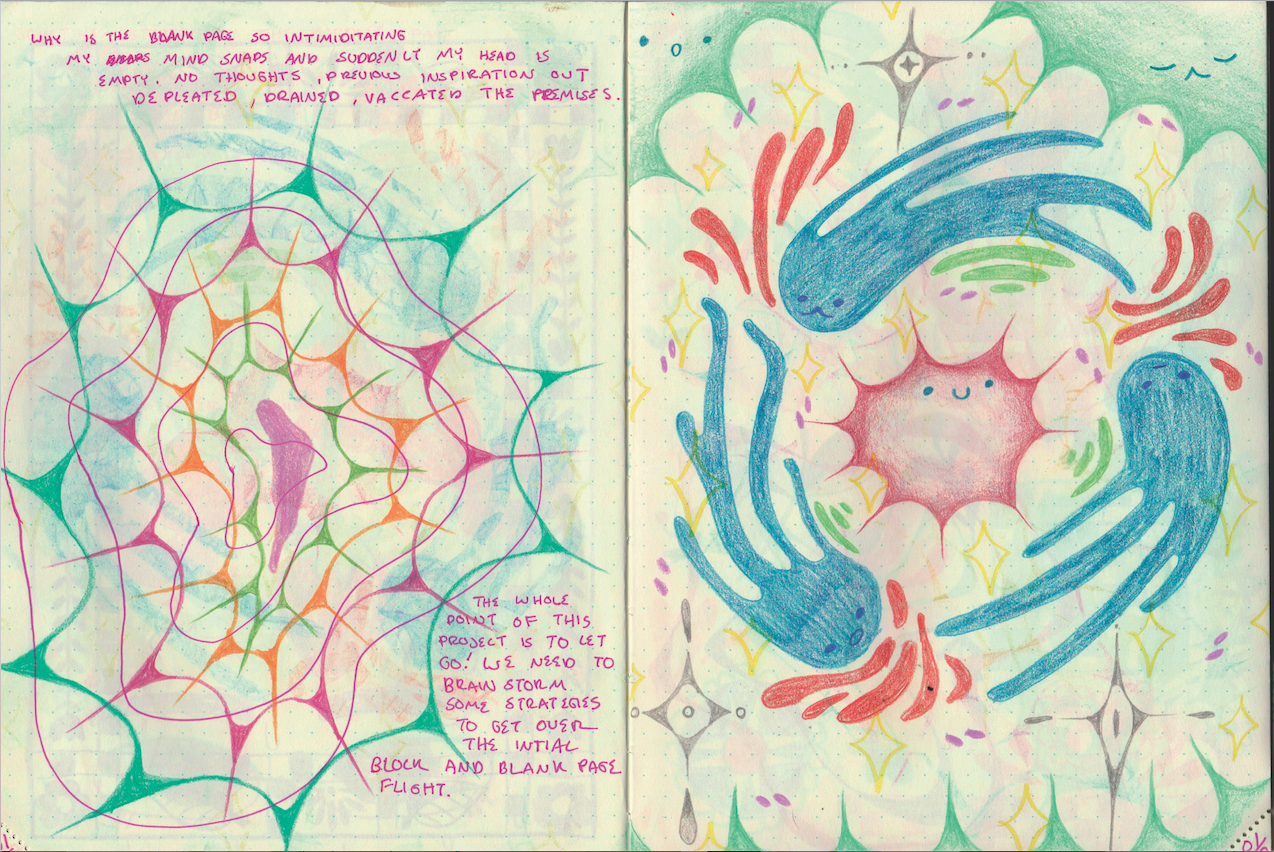 WHY IS THE BLANK PAGE SO INTIMIDITATING
MY MIND SNAPS AND SUDDENLY MY HEAD IS
EMPTY. NO THOUGHTS, PREVIOUS INSPIRATION OUT
DEPLEATED, DRAINED, VACCATED THE PREMISES.
THE WHOLE
POINT OF THIS
PROJECT IS TO LET
GO! WE NEED TO
BRAIN STORM
SOME STRATEGIES
TO GET OVER
THE INTIAL
BLOCK AND BLANK PAGE
FLIGHT.